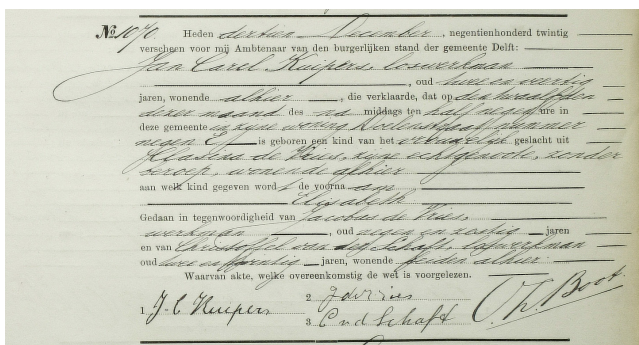 No. 1070. Heden dertien December, negentienhonderd twintig
verscheen voor mij Ambtenaar van den burgerlijken stand der gemeente Delft:
Jan Carel Kuipers, loswerkman
, oud twee en veertig
jaren, wonende alhier, die verklaarde, dat op den twaalfden
dezer maand des na middags ten half negen ure in
deze gemeente in zijne woning Doelenstraat nummer
negen is geboren een kind van het vrouwelijk geslacht uit
de Vries, zijne echtgenoote, zonder
beroep, wonende alhier
aan welk kind gegeven wordt de voornaam
Elisabeth
Gedaan in tegenwoordigheid van Jacobus de Vries,
werkman, oud negen en zestig jaren
en van Christoffel van der Schaft, loswerkman
oud twee en jaren, wonende beiden alhier.
Waarvan akte, welke overeenkomstig de wet is voorgelezen.
1 J. C Kuipers
2 J de Vries
3 C v d Schaft
Th. Boot